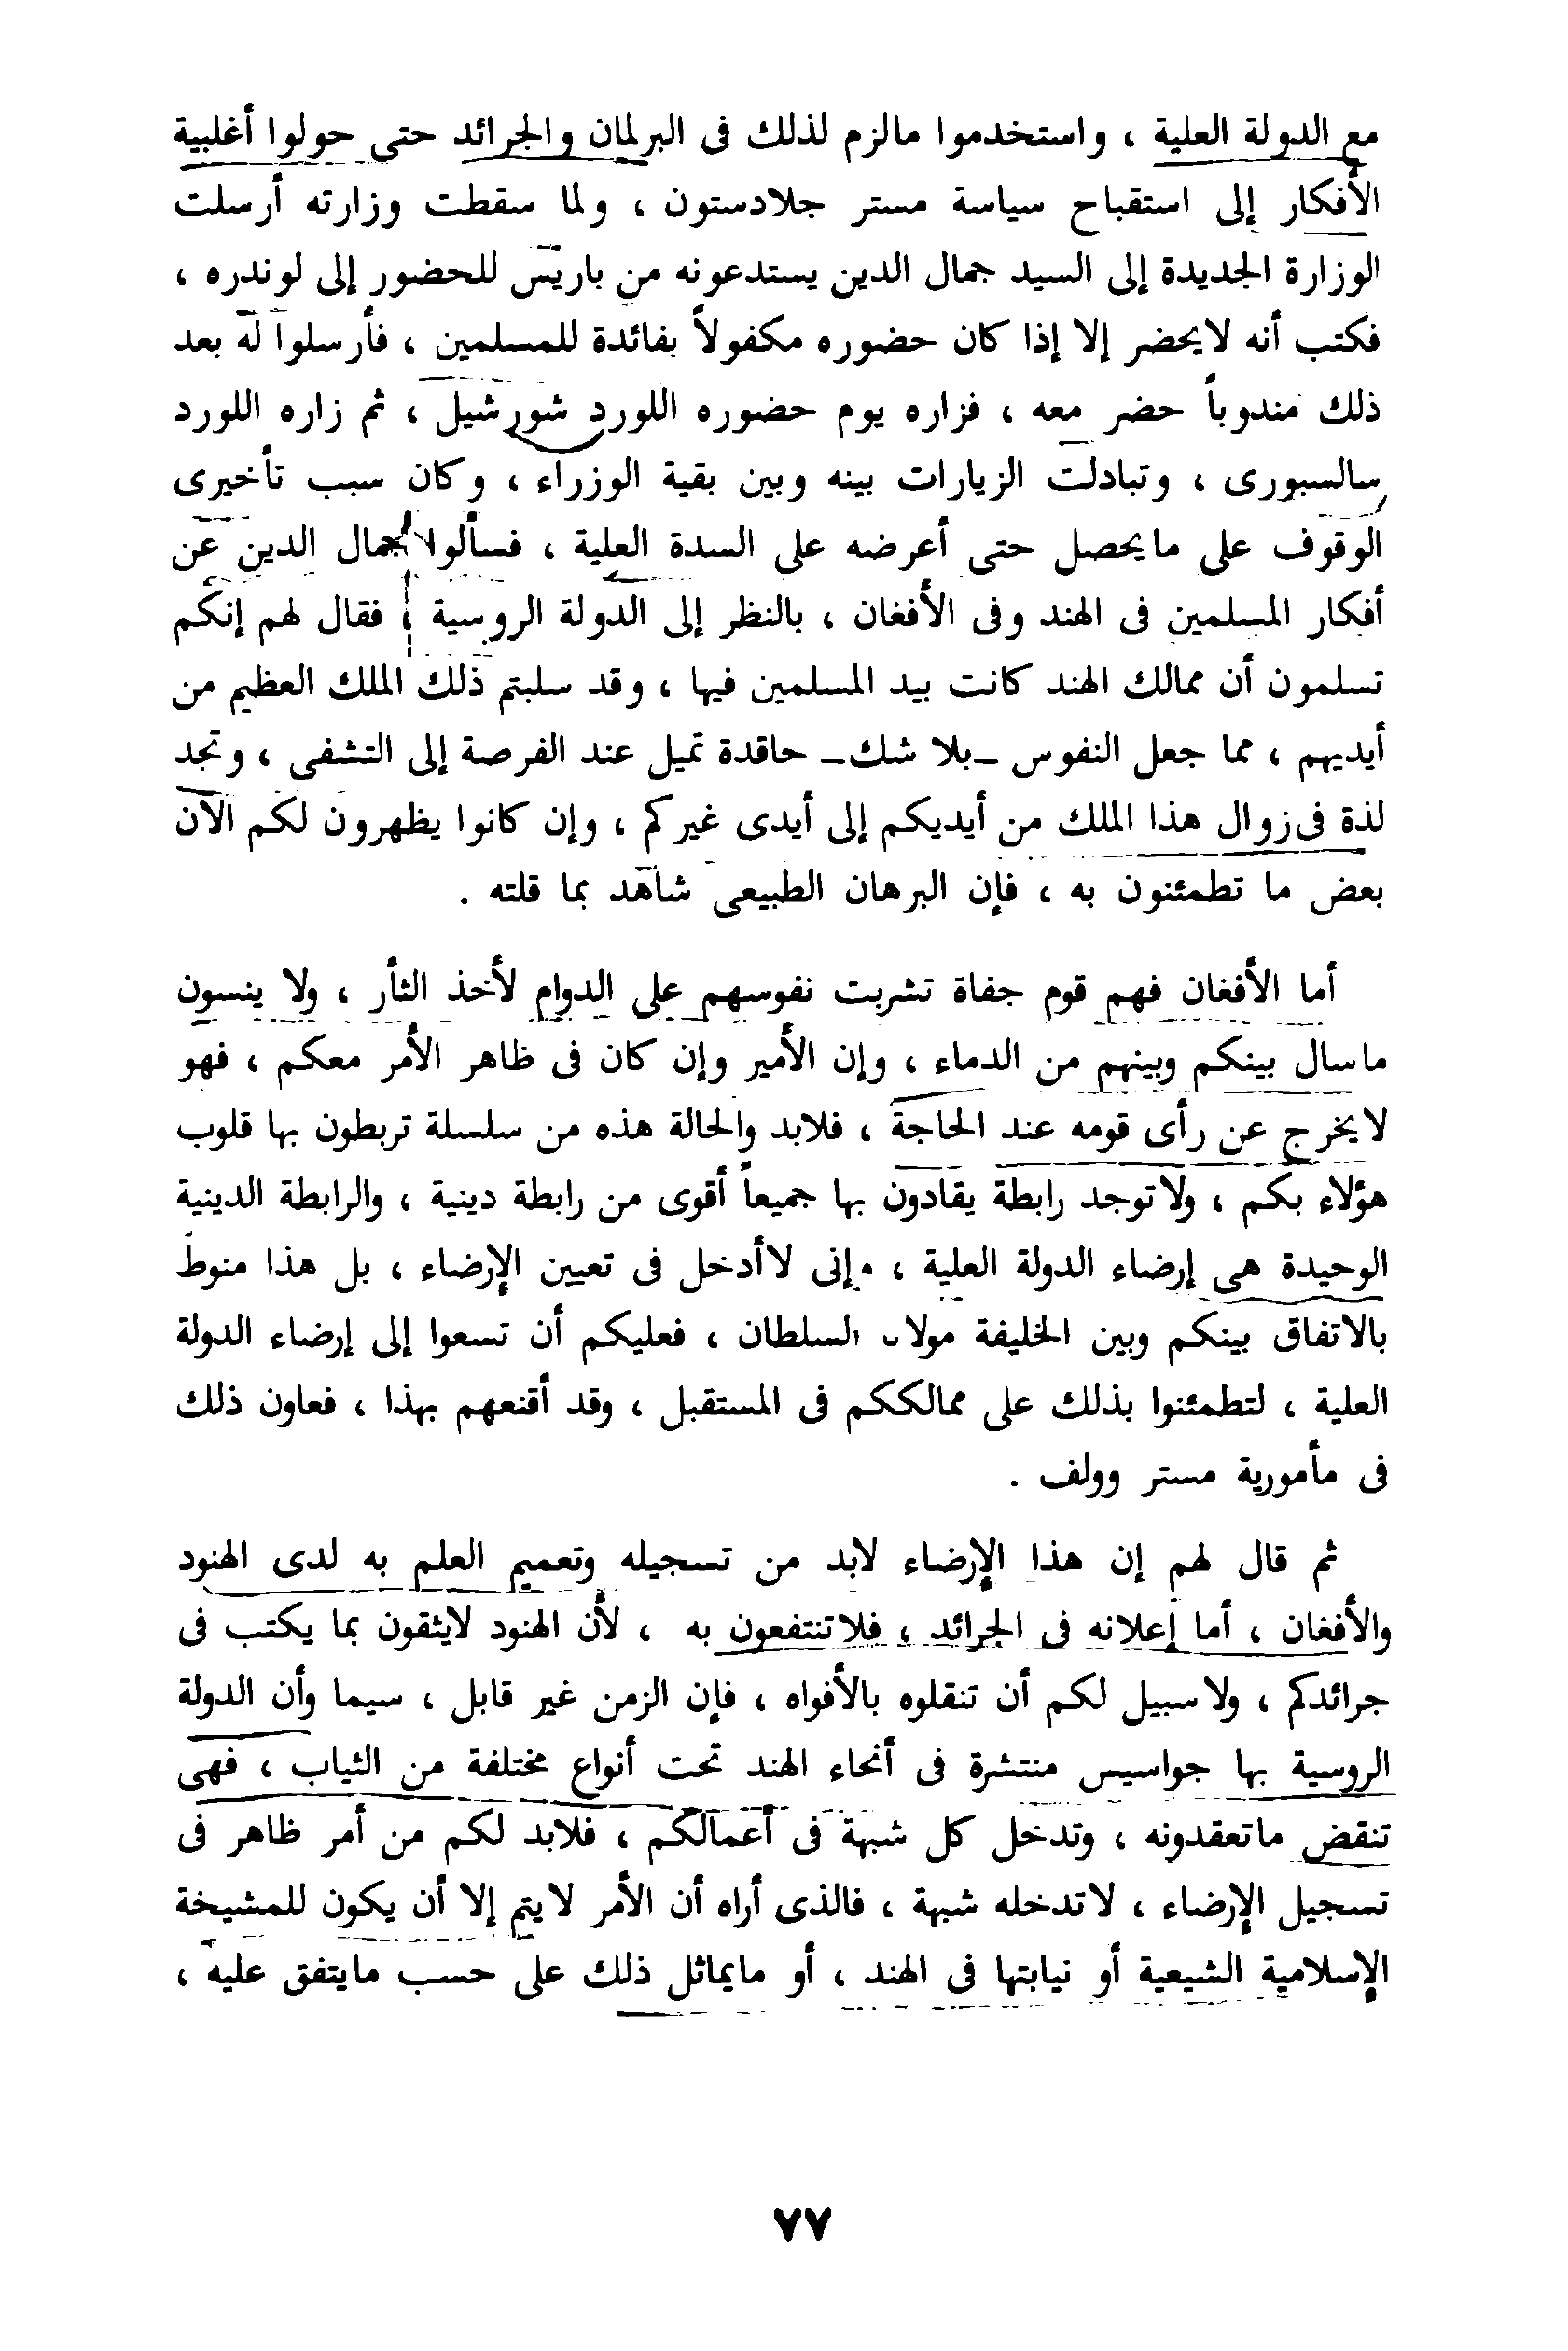 مع الدولة العلية ، واستخدموا مالزم لذلك فى البرلمان والجرائد حتى حولوا أغلبية
الأفكار إلى استقباح سياسة مستر جلادستون ، ولما سقطت وزارته أرسلت
الوزارة الجديدة إلى السيد جمال الدين يستدعونه من باريس للحضور إلى لوندره ،
فكتب أنه لايحضر إلا إذا كان حضوره مكفولاً بفائدة للمسلمين ، فأرسلوا له بعد
ذلك مندوباً حضر معه ، فزاره يوم حضوره اللورد شورشيل ، ثم زاره اللورد
سالسبورى ، وتبادلت الزيارات بينه وبين بقية الوزراء ، وكان سبب تأخيرى
الوقوف على مايحصل حتى أعرضه على السدة العلية ، فسألوا جمال الدين عن
أفكار المسلمين فى الهند وفى الأفغان ، بالنظر إلى الدولة الروسية ، فقال لهم إنكم
تسلمون أن ممالك الهند كانت بيد المسلمين فيها ، وقد سلبتم ذلك الملك العظيم من
أيديهم ، مما جعل النفوس _بلا شك_ حاقدة تميل عند الفرصة إلى التشفى ، وتجد
لذة فى زوال هذا الملك من أيديكم إلى أيدى غيركم ، وإن كانوا يظهرون لكم الآن
بعض ما تطمئنون به ، فإن البرهان الطبيعى شاهد بما قلته .
أما الأفغان فهم قوم جفاة تشربت نفوسهم على الدوام لأخذ الثأر ، ولا ينسون
ماسال بينكم وبينهم من الدماء ، وإن الأمير وإن كان فى ظاهر الأمر معكم ، فهو
لايخرج عن رأى قومه عند الحاجة ، فلابد والحالة هذه من سلسلة تربطون بها قلوب
هؤلاء بكم ، ولاتوجد رابطة يقادون بها جميعاً أقوى من رابطة دينية ، والرابطة الدينية
الوحيدة هى إرضاء الدولة العلية ، وإنى لاأدخل فى تعيين الإرضاء ، بل هذا منوط
بالاتفاق بينكم وبين الخليفة مولانا السلطان ، فعليكم أن تسعوا إلى إرضاء الدولة
العلية ، لتطمئنوا بذلك على ممالككم فى المستقبل ، وقد أقنعهم بهذا ، فعاون ذلك
فى مأمورية مستر وولف .
ثم قال لهم إن هذا الإرضاء لابد من تسجيله وتعميم العلم به لدى الهنود
والأفغان ، أما إعلانه فى الجرائد ، فلاتنتفعون به ، لأن الهنود لايثقون بما يكتب فى
جرائدكم ، ولاسبيل لكم أن تنقلوه بالأفواه ، فإن الزمن غير قابل ، سيما وأن الدولة
الروسية بها جواسيس منتشرة فى أنحاء الهند تحت أنواع مختلفة من الثياب ، فهى
تنقض ماتعقدونه ، وتدخل كل شبهة فى أعمالكم ، فلابد لكم من أمر ظاهر فى
تسجيل الإرضاء ، لاتدخله شبهة ، فالذى أراه أن الأمر لايتم إلا أن يكون للمشيخة
الإسلامية الشيعية أو نيابتها فى الهند ، أو مايماثل ذلك على حسب مايتفق عليه ،
٧٧